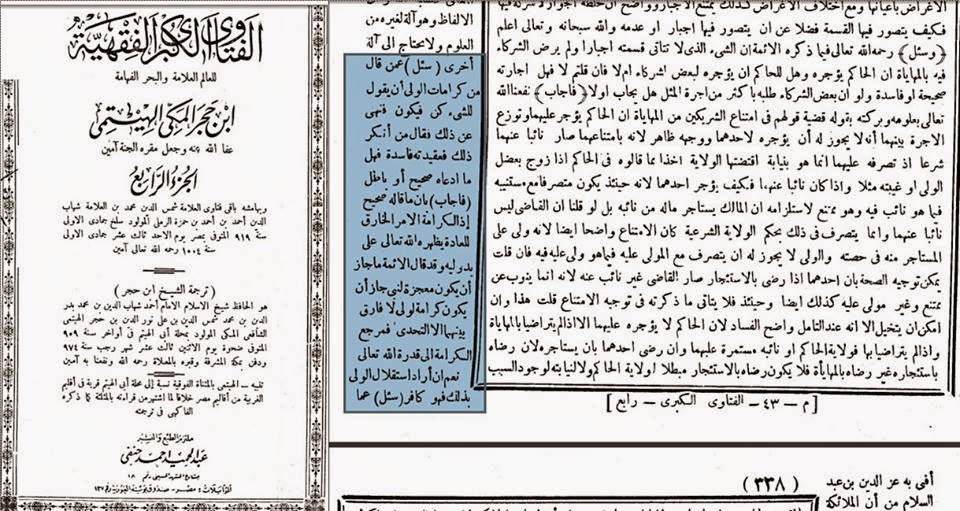 الفتاوى الكبرى الفقهية
للعالم العلامة والبحر الفهامة
ابن حجر المكى الهيتمى
عفا الله عنه وجعل مقره الجنة آمين
الجزء الرابع
وبهامشه باقى فتاوى العلامة شمس الدين محمد بن العلامة شهاب
الدين أحمد بن أحمد بن حمزة الرملى المولود سلخ جمادى الاولى
سنة ٩١٩ المتوفى بمصر يوم الاحد ثالث عشر جمادى الاولى
سنة ١٠٠٤ رحمه الله تعالى آمين
(ترجمة الشيخ ابن حجر)
هو الحافظ شيخ الاسلام الامام أحمد شهاب الدين بن محمد بدر
الدين بن محمد شمس الدين بن على نور الدين بن حجر الهيتمى
الشافعى المكى المولود بمحلة أبى الهيتم فى أواخر سنة ٩٠٩
المتوفى ضحوة يوم الاثنين ثالث عشر رجب سنة ٩٧٤
ودفن بمكة المشرفة وقبره بالمعلاة رحمه الله ونفعنا به آمين
تنبيه - الهيتمى بالمثناة الفوقية نسبة إلى محلة أبى الهيتم قرية فى أقليم
الغربية من أقاليم مصر خلافا لما اشتهر من قراءته بالمثلثة كما ذكره
الفاكهى فى ترجمته
ملتزم الطبع والنشر
عبد الحميد أحمد حنفى
بشارع المشهد الحسينى رقم ١٨
المراسلات : مصر - صندوق بوستة الغورية رقم ١٣٧
الالفاظ وهو آلة لغيره من
العلوم ولا يحتاج الى آلة
أخرى (سئل) عمن قال
من كرامات الولى أن يقول
للشىء كن فيكون فنهى
عن ذلك فقال من أنكر
ذلك فعقيدته فاسدة فهل
ما ادعاه صحيح أو باطل
(فاجاب) بان ما قاله صحيح
إذ الكرامة الامر الخارق
للعادة يظهره الله تعالى على
يد وليه وقد قال الائمة ما جاز
أن يكون معجزة لنبى جاز أن
يكون كرامة لولى لا فارق
بينهما الا التحدى فمرجع
الكرامة الى قدرة الله تعالى
نعم ان أراد استقلال الولى
بذلك فهو كافر (سئل) عما
الاغراض باعيانها ومع اختلاف الاغراض
فكيف يتصور فيها القسمة فضلا عن ان يتصور فيها اجبار او عدمه والله سبحانه وتعالى اعلم
(وسئل) رحمه الله تعالى فيما ذكره الائمة ان الشىء الذى لا تتاتى قسمته اجبارا ولم يرض الشركاء
فيه بالمهاياة ان الحاكم يؤجره وهل للحاكم ان يؤجره لبعض الشركاء ام لا فان قلتم لا فهل اجارته
صحيحة او فاسدة ولو ان بعض الشركاء طلبه با كثر من اجرة المثل هل يجاب اولا (فاجاب) نفعنا الله
تعالى بعلومه وبركته بقوله قضية قولهم فى امتناع الشريكين من المهاياة ان الحاكم يؤجر عليهما وتوزع
الاجرة بينهما أنه لا يجوز له أن يؤجره لاحدهما ووجهه ظاهر لانه بامتناعهما صار نائبا عنهما
شرعا اذ تصرفه عليهما انما هو بنيابة اقتضتها الولاية اخذا مما قالوه فى الحاكم اذا زوج بعضل
الولى او غيبته مثلا واذا كان نائبا عنهما فكيف يؤجر احدهما لانه حينئذ يكون متصرفا مع مستنيبه
فيما هو نائب فيه وهو ممتنع لاستلزامه ان المالك يستاجر ماله من نائبه بل لو قلنا ان القاضى ليس
نائبا عنهما وانما يتصرف فى ذلك بحكم الولاية الشرعية كان الامتناع واضحا ايضا لانه ولى على
المستاجر منه فى حصته والولى لا يجوز له ان يتصرف مع المولى عليه فيما هو ولى عليه فيه فان قلت
يمكن توجيه الصحة بان احدهما اذا رضى بالاستئجار صار القاضى غير نائب عنه لانه انما ينوب عن
ممتنع وغير مولى عليه كذلك ايضا وحينئذ فلا يتاتى ما ذكرته فى توجيه الامتناع قلت هذا وان
امكن ان يتخيل الا انه عند التامل واضح الفساد لان الحاكم لا يؤجره عليهما الا اذا لم يتراضيا بالمهاياة
واذا لم يتراضيا بها فولاية الحاكم او نائبه مستمرة عليهما وان رضى احدهما بان يستاجره لان رضاه
باستئجاره غير رضاه بالمهايأة فلا يكون رضاه بالاستئجار مبطلا لولاية الحاكم ولا لنيابته لوجود السبب
[م — ٤٣ — الفتاوى الكبرى — رابع]
(٣٣٨)
أفتى به عز الدين بن عبد
السلام من أن الملائكة